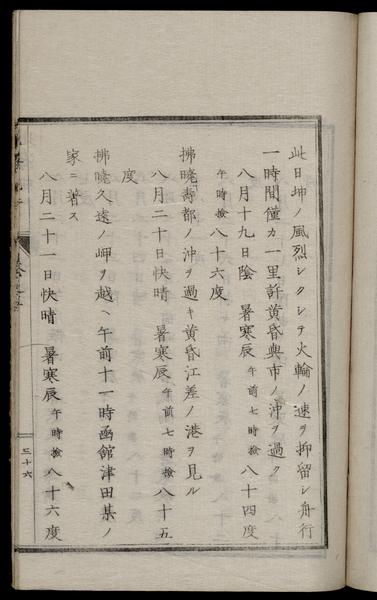 此日坤ノ風烈シクシテ火輪ノ速ヲ抑留シ舟行
一時間僅カ一里許黄昏奥市ノ沖ヲ過ク
八月十九日陰 暑寒辰 午前七時檢 八十四度
午時檢 八十六度
拂曉壽都ノ沖ヲ過キ黄昏江差ノ港ヲ見ル
八月二十日快晴 暑寒辰 午前七時檢 八十五
度
拂曉久遠ノ岬ヲ越ヘ午前十一時函館津田某ノ
家ニ著ス
八月二十一日快晴 暑寒辰 午時檢 八十六度
三十六